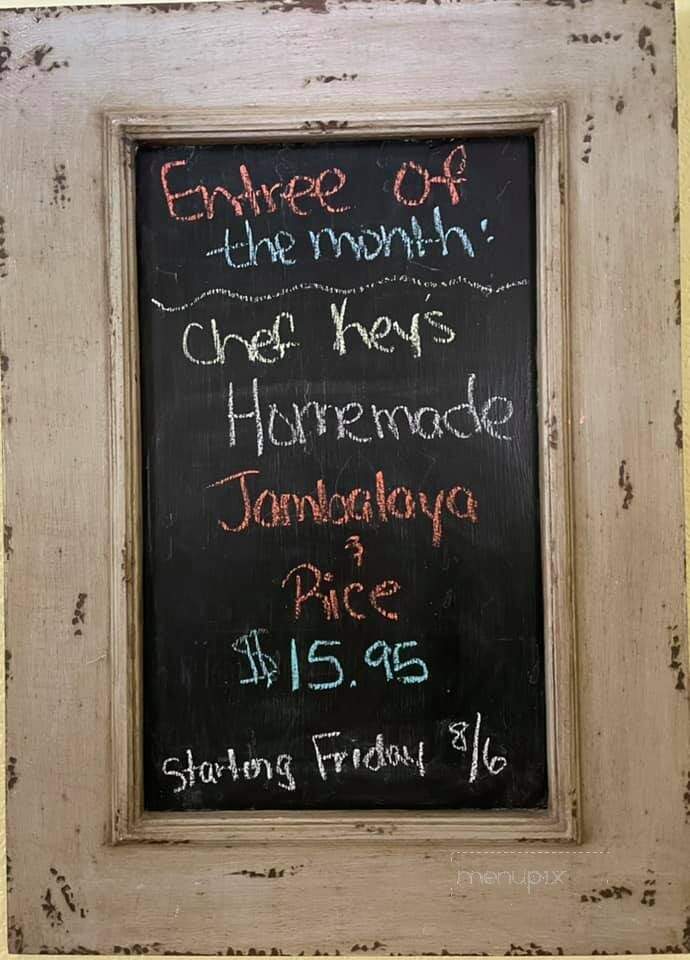 Entree of
the month:
Chef Key's
Homemade
Jambalaya
&
Rice
$15.95
Starting Friday 8/6
menupix